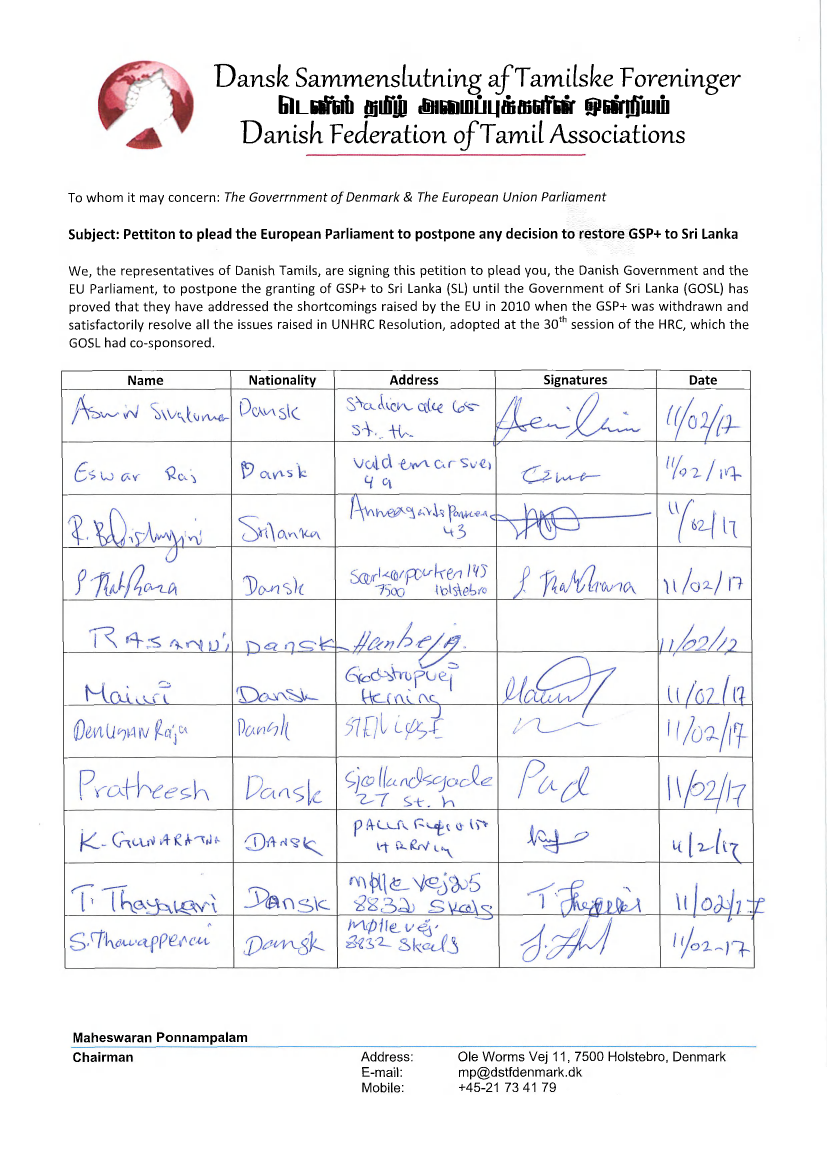 Dansk Sammenslutning af Tamilske Foreninger
டெனிஸ் தமிழ் அமைப்புக்களின் ஒன்றியம்
Danish Federation of Tamil Associations
To whom it may concern: The Goverrnment of Denmark & The European Union Parliament
Subject: Pettiton to plead the European Parliament to postpone any decision to restore GSP+ to Sri Lanka
We, the representatives of Danish Tamils, are signing this petition to plead you, the Danish Government and the
EU Parliament, to postpone the granting of GSP+ to Sri Lanka (SL) until the Government of Sri Lanka (GOSL) has
proved that they have addressed the shortcomings raised by the EU in 2010 when the GSP+ was withdrawn and
satisfactorily resolve all the issues raised in UNHRC Resolution, adopted at the 30th session of the HRC, which the
GOSL had co-sponsored.
Name Nationality Address Signatures Date
Aswin Sivakumar Dansk Stadion alle 65 11/02/17
st. th
Eswar Raj Dansk Valdemarsvej 11/02/17
4 a
R. Srilanka 11/02/17
43
Dansk 11/02/17
7500 Holstebro
RASANNI Dansk 11/02/12
Maiuri Dansk Godstrupvej 11/02/17
Herning
Denushan Raja Dansk 11/02/17
Pratheesh Dansk Sjællandsgade 11/02/17
27 st. h
K. GUNARATNA DANSK 11/2/17
T. Thayakari Dansk Mølle vej 25 11/02/17
8832 Skals
Dansk Mølle vej. 11/02-17
8832 Skals
Maheswaran Ponnampalam
Chairman Address: Ole Worms Vej 11, 7500 Holstebro, Denmark
E-mail: mp@dstfdenmark.dk
Mobile: +45-21 73 41 79